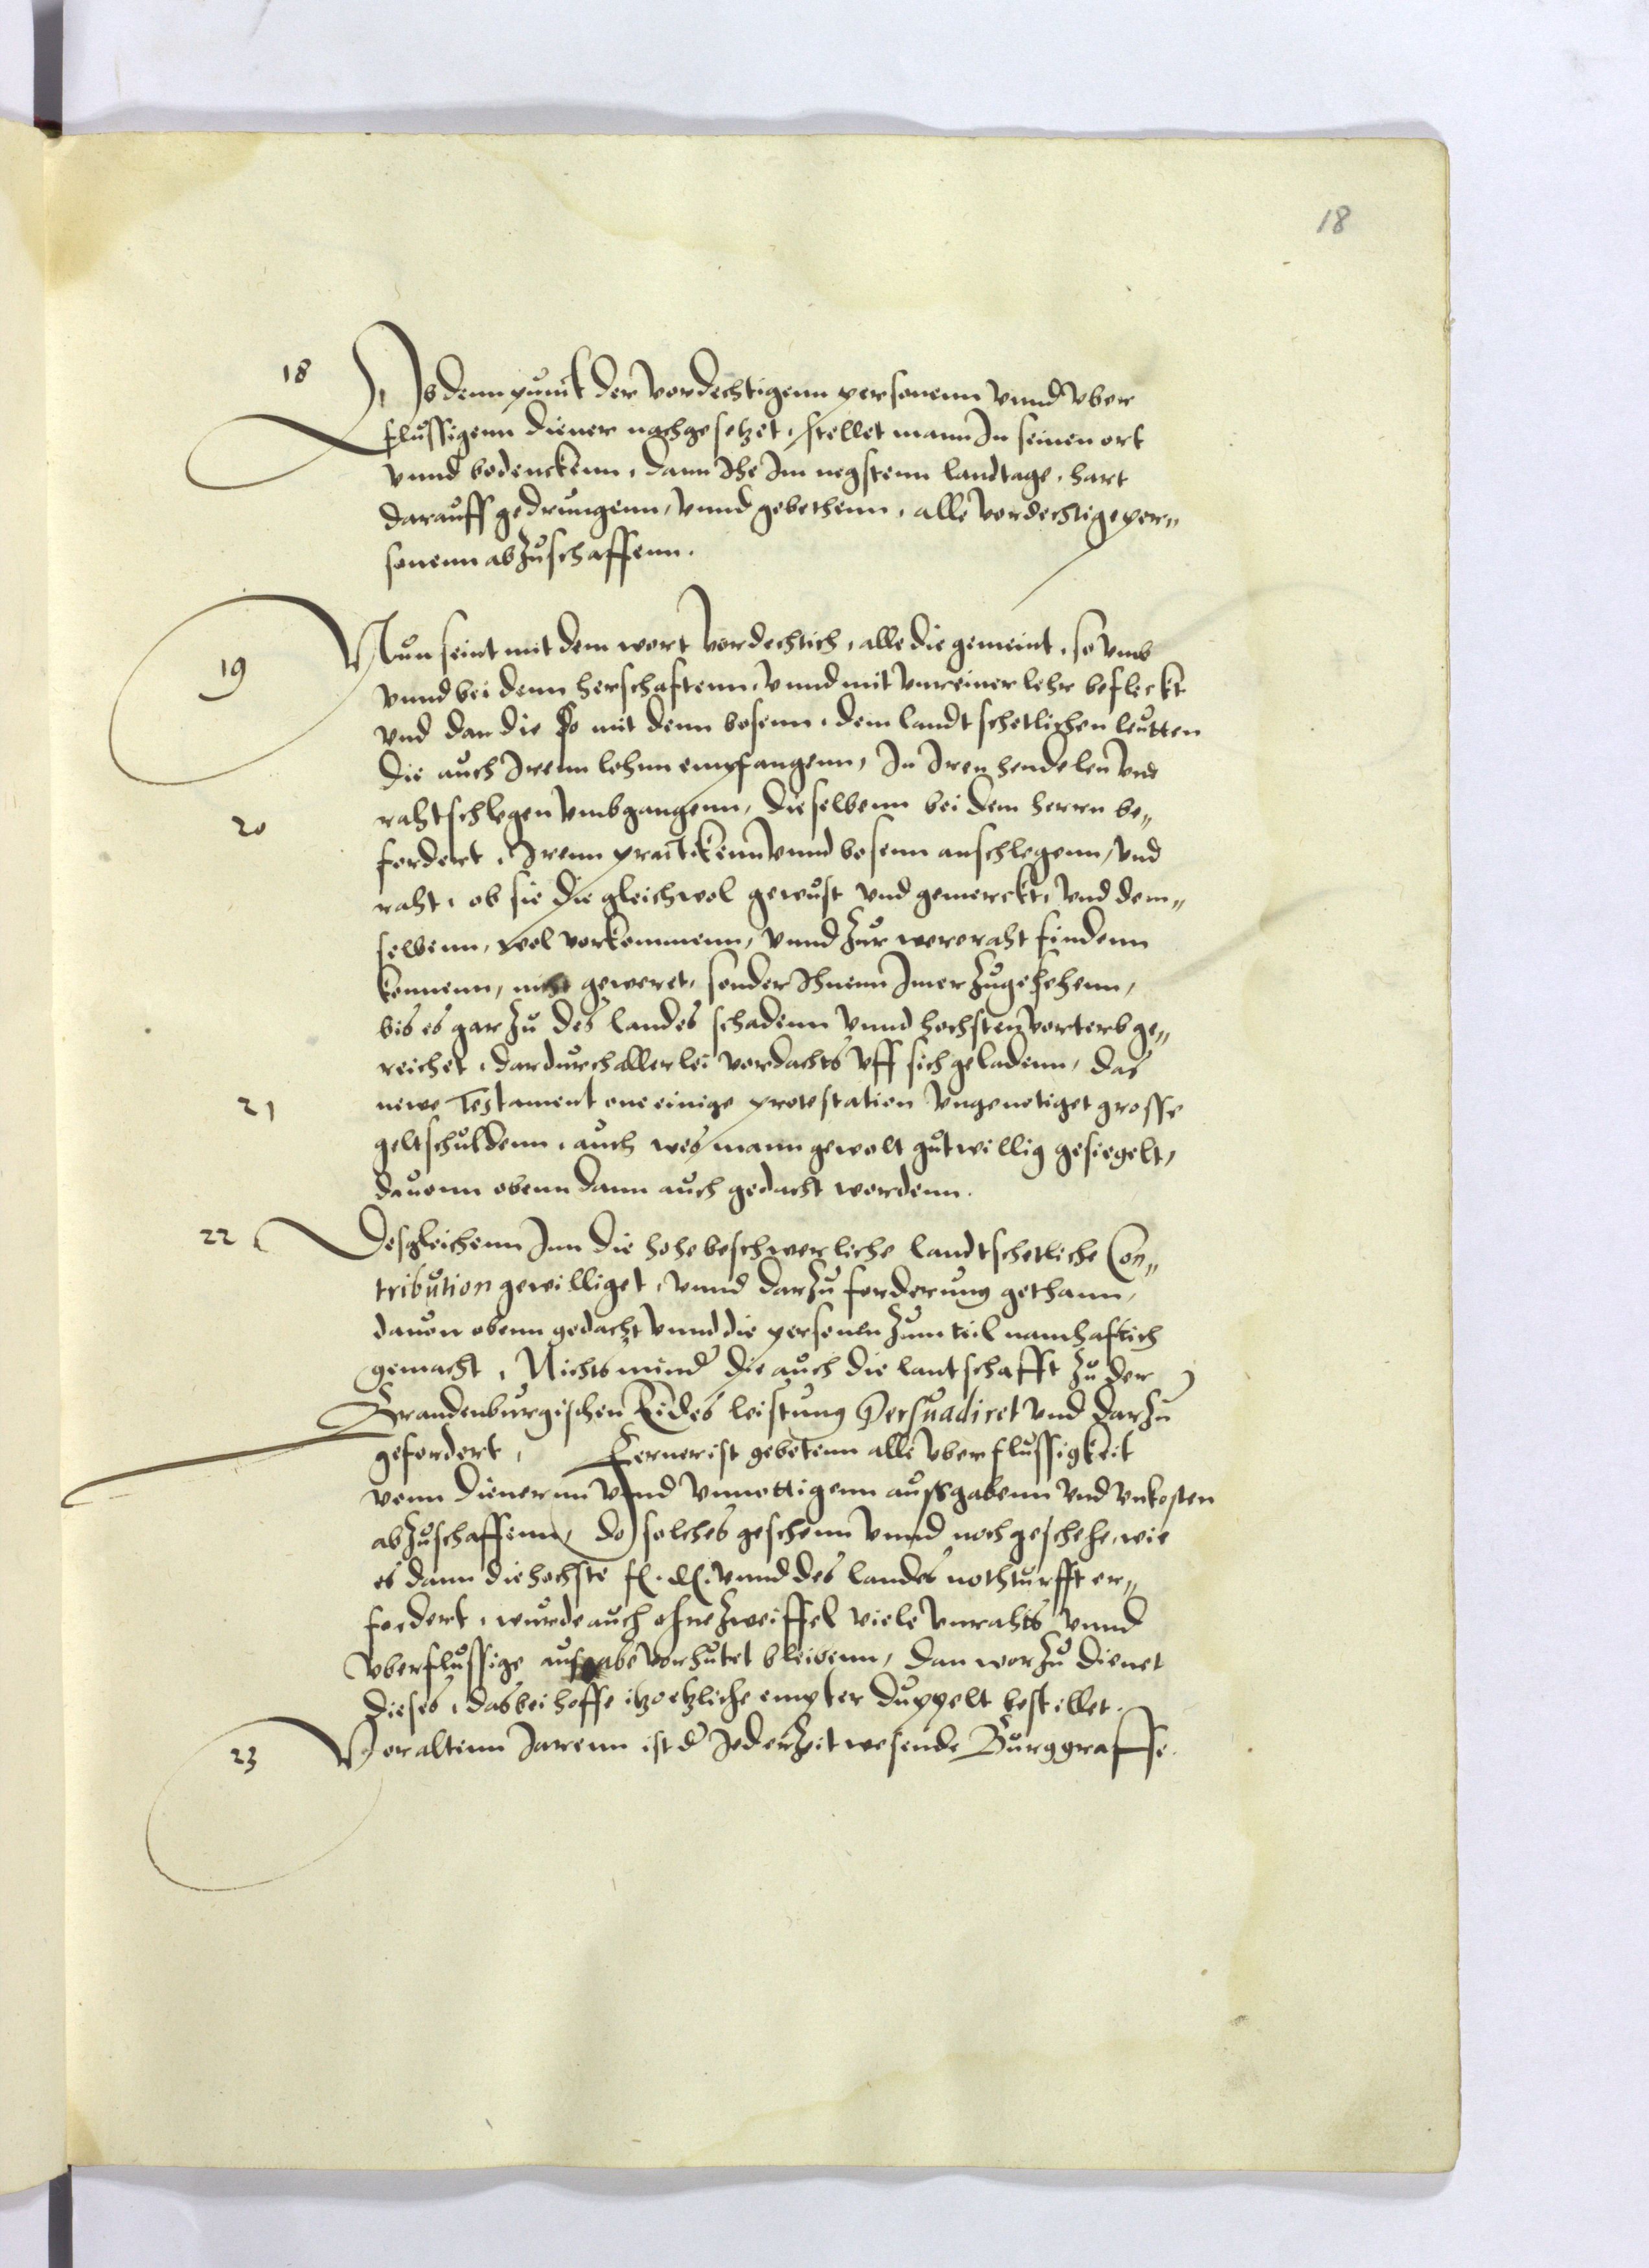 18
18 Als denn punct der vordechtigenn personenn vnnd vber
flussigenn diener nachgesetzet, stellet mann In seinen ort
vnnd bedenckenn, dann Ihe Im negstenn landtage, hart
darauff gedrungenn, vnnd gebethenn, alle vordechtige per„
sonenn abzuschaffenn.
19 Nun seint mit dem wort vordechtich, alle die gemeint, so vmb
vnnd bei denn herschaftenn, vnnd mit vnreiner lehr befleckt
vnd dan die So mit denn bosenn, dem landt schetlichen leutten
die auch Irenn lohnn empfangenn, In Iren hendelen vnd
20 rahtschlegen vmbgangenn, dieselbenn bei dem herren be„
fordert, Irenn practikenn vnnd bosenn anschlegenn, vnd
raht, ob sie die gleichwol gewust vnd gemerckt, vnd dem„
selbenn, wol vorkommenn, vnnd zur were raht findenn
konnenn, nicht geweret, sonder Ihnenn Imer zugesehenn,
bis es gar zu des landes schadenn vnnd hochsten vorterb ge„
reichet, dardurch allerlei vordachts vff sich geladenn, das
21 newe Testament one einige protestation vngenotiget grosse
geltschuldenn, auch wes mann gewolt gutwillig gesiegelt,
dauonn obenn dann auch gedacht wordenn.
22 Desgleichenn Inn die hohe beschwerliche landtschetliche Con„
tribution gewilliget, vnnd darzu forderung gethann,
dauon obenn gedacht vnnd die personen zum teil namhaftich
gemacht, Nichts minder die auch die lantschafft zu der
Brandenburgischen Eides leistung Persuadiret vnd darzu
gefordert, Ferner ist gebetenn alle vberflussigkeit
vonn dienernn vnnd vnnottigenn aussgabenn vnd vnkosten
abzuschaffenn, do solches geschenn vnnd noch geschehe, wie
es dann die hochste fl. dl. vnnd des landes nothturfft er„
fordert, wurde auch ohne zweiffel viele vnrahts vnnd
vberflussige ausgabe vorhutet bleibenn, dan worzu dienet
dieses, das bei hoffe itzo etzliche empter duppelt bestellet.
23 Vor altenn Jarenn ist der Jederzeit wesende Burggraffe.